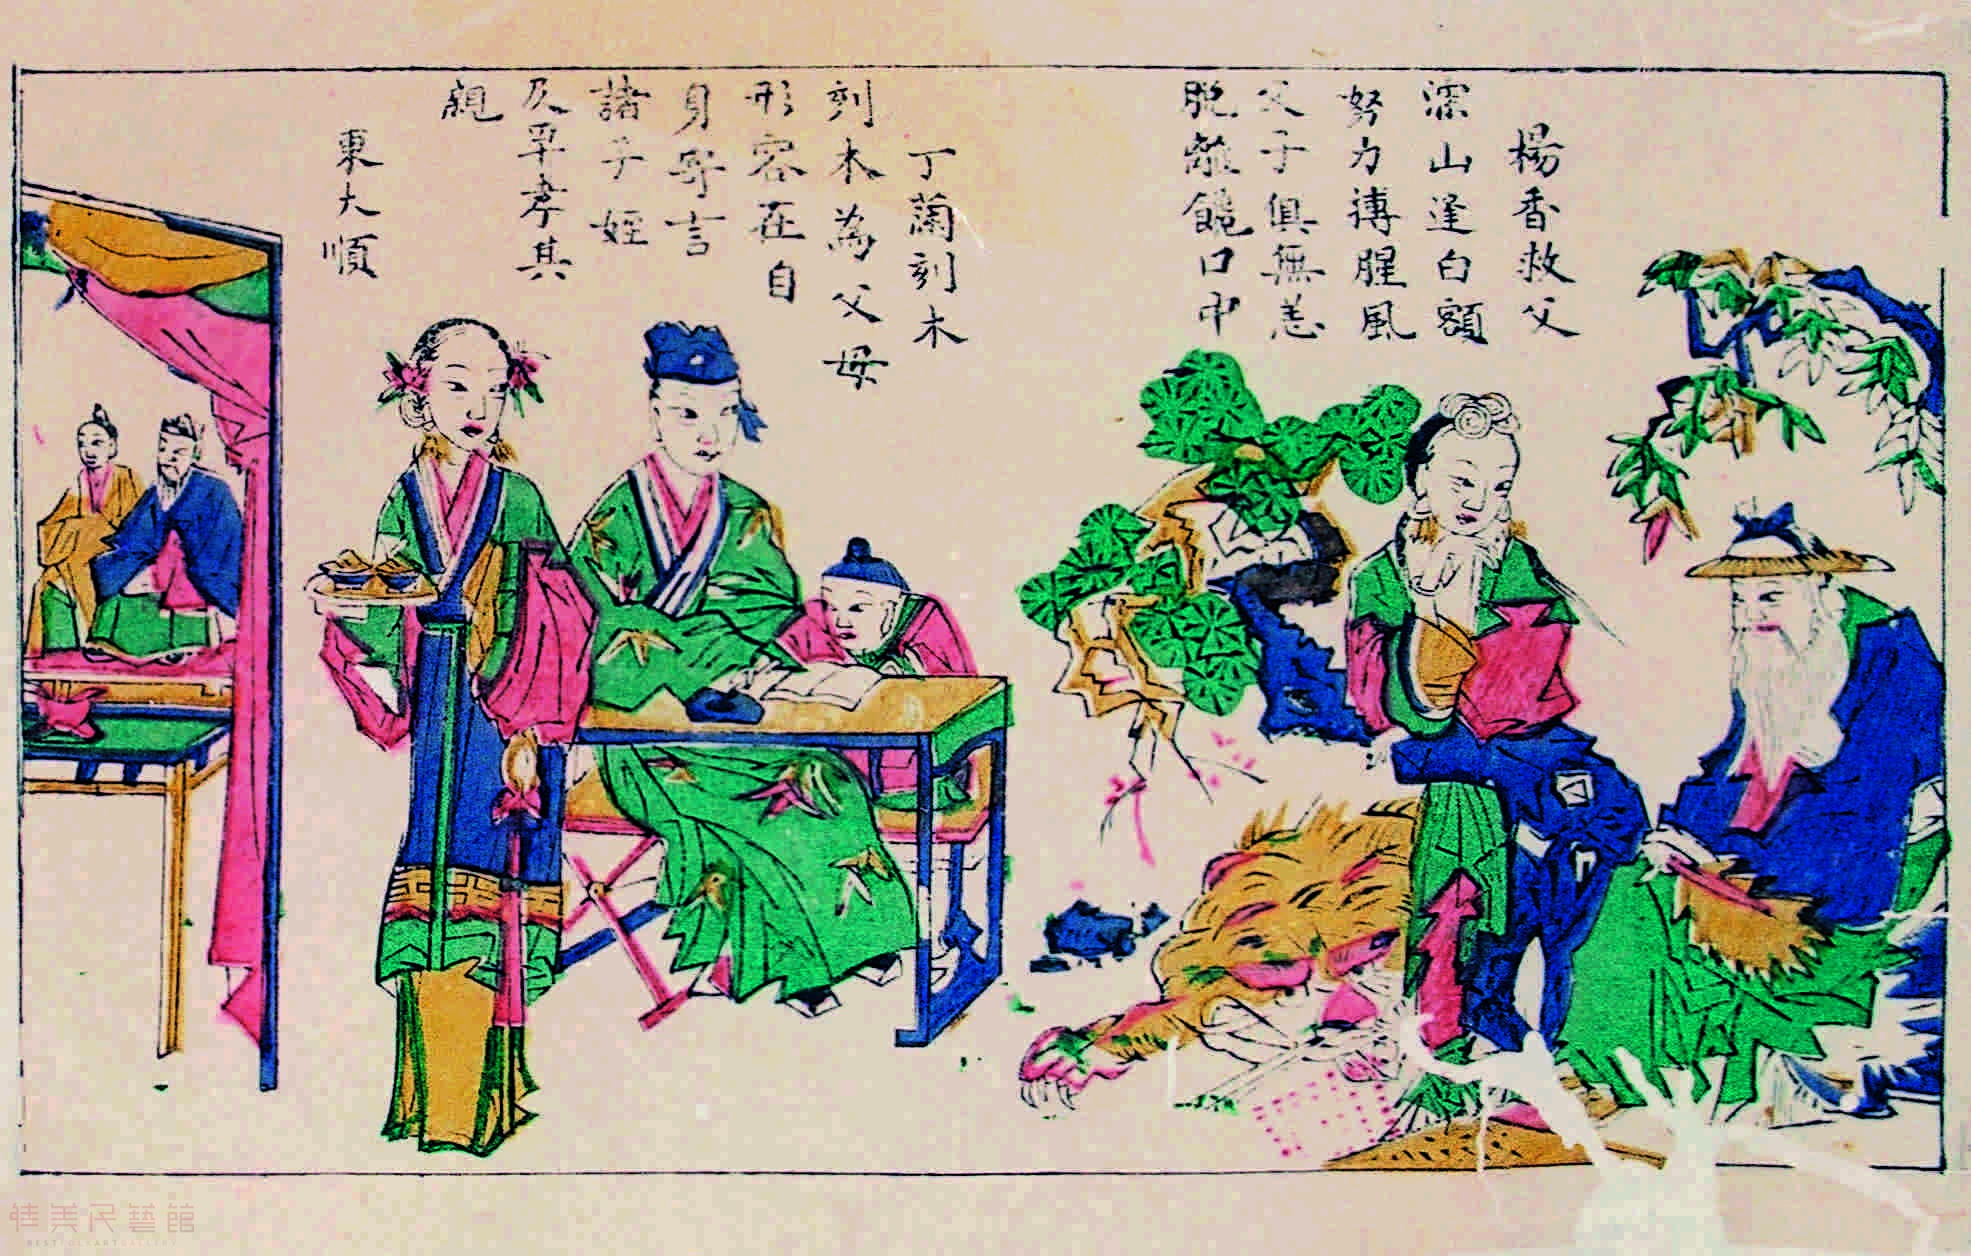 楊香救父
深山逢白額
努力搏腥風
父子俱無恙
脫離饞口中
丁蘭刻木
刻木為父母
形容在自
身寄言
諸子姪
及早孝其
親
東大順
佳美民藝館